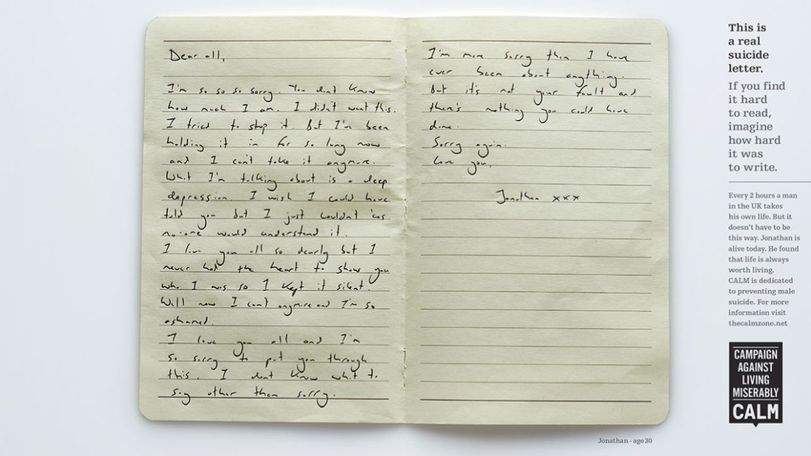 Dear all,
I'm so so so sorry. You don't know
how much I am. I didn't want this.
I tried to stop it. But I've been
holding it in for so long now
and I can't take it anymore.
What I'm talking about is a deep
depression. I wish I could have
told you but I just couldn't 'cos
no-one would understand it.
I love you all so dearly but I
never had the heart to show you
who I was so I kept it silent.
Well now I can't anymore and I'm so
ashamed.
I love you all and I'm
so sorry to put you through
this. I don't know what to
say other than sorry.
I'm more sorry than I have
ever been about anything.
But it's not your fault and
there's nothing you could have
done.
Sorry again.
Love you,
Jonathan xxx
This is
a real
suicide
letter.
If you find
it hard
to read,
imagine
how hard
it was
to write.
Every 2 hours a man
in the UK takes
his own life. But it
doesn't have to be
this way. Jonathan is
alive today. He found
that life is always
worth living.
CALM is dedicated
to preventing male
suicide. For more
information visit
thecalmzone.net
CAMPAIGN
AGAINST
LIVING
MISERABLY
CALM
Jonathan - age 30